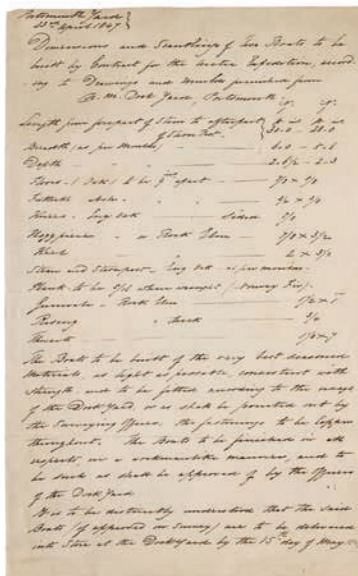 Portsmouth Yard
13th April 1847
Dimensions and Scantlings of Two Boats to be
built by Contract for the Arctic Expedition, accord-
ing to Drawings and Moulds furnished from
H. M. Dock Yard, Portsmouth.
Length from forepart of Stem to afterpart
of Stern Post
Breadth (as per Moulds)
Depth
Floors (Oak) to be
Futtocks Ash
Knees Eng Oak Sided
Hogg pieces or Rock Elm
Keel
Stem and Sternpost Eng Oak as per moulds
Plank to be when wrought (Norway Fir)
Gunwale Rock Elm
Rising thick
Thwarts
The Boats to be built of the very best seasoned
Materials, as light as possible, consistent with
strength, and to be fitted according to the usage
of the Dock Yard, or as shall be pointed out by
the Surveying Officer. the fastenings to be Copper
throughout. The Boats to be finished in all
respects, in a workmanlike manner, and to
be such as shall be approved of by the Officers
of the Dock Yard
It is to be distinctly understood that the said
Boats (if approved on Survey) are to be delivered
into Store at the Dock Yard by the 15th day of May